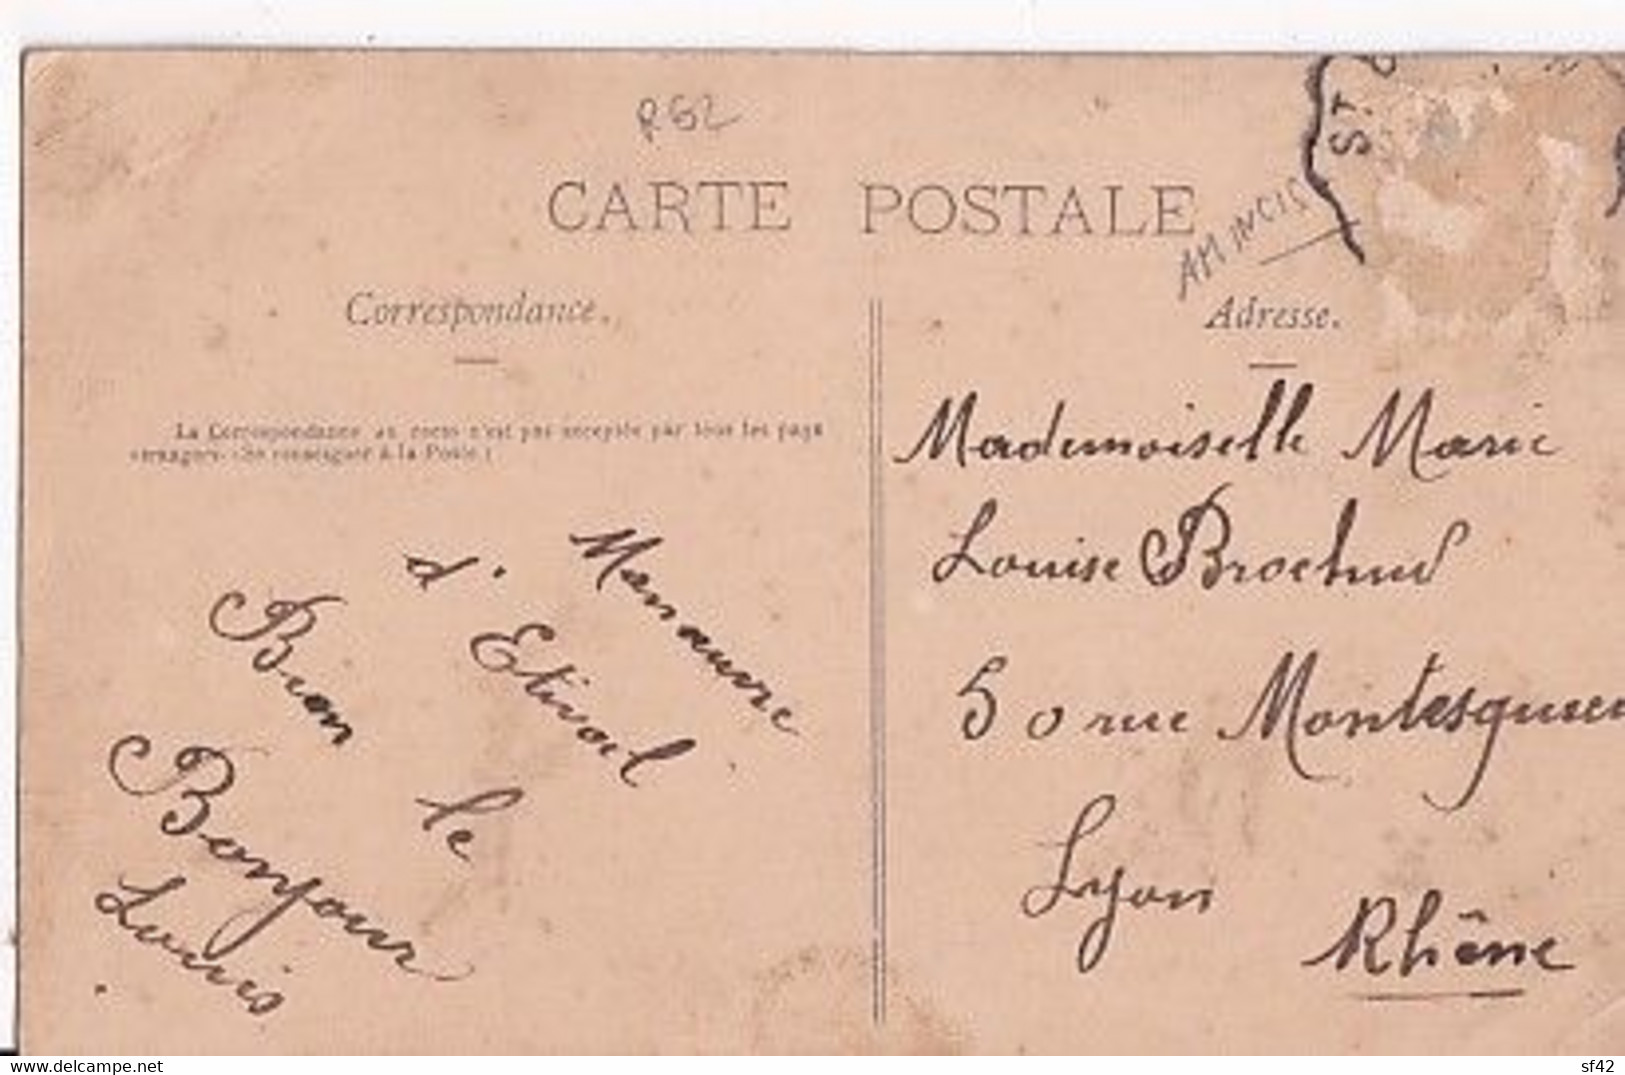 R62
CARTE POSTALE
ST
AM INCIS
Correspondance.
Adresse.
La Correspondance au recto n'est pas acceptée par tous les pays
étrangers (Se renseigner à la Poste.)
Mademoiselle Marie
Louise Brochud
50 rue Montesquieu
Lyon
Rhône
Manauvre
d'Etivoel
Bien le
Bonjour
Louis
www.delcampe.net
sf42